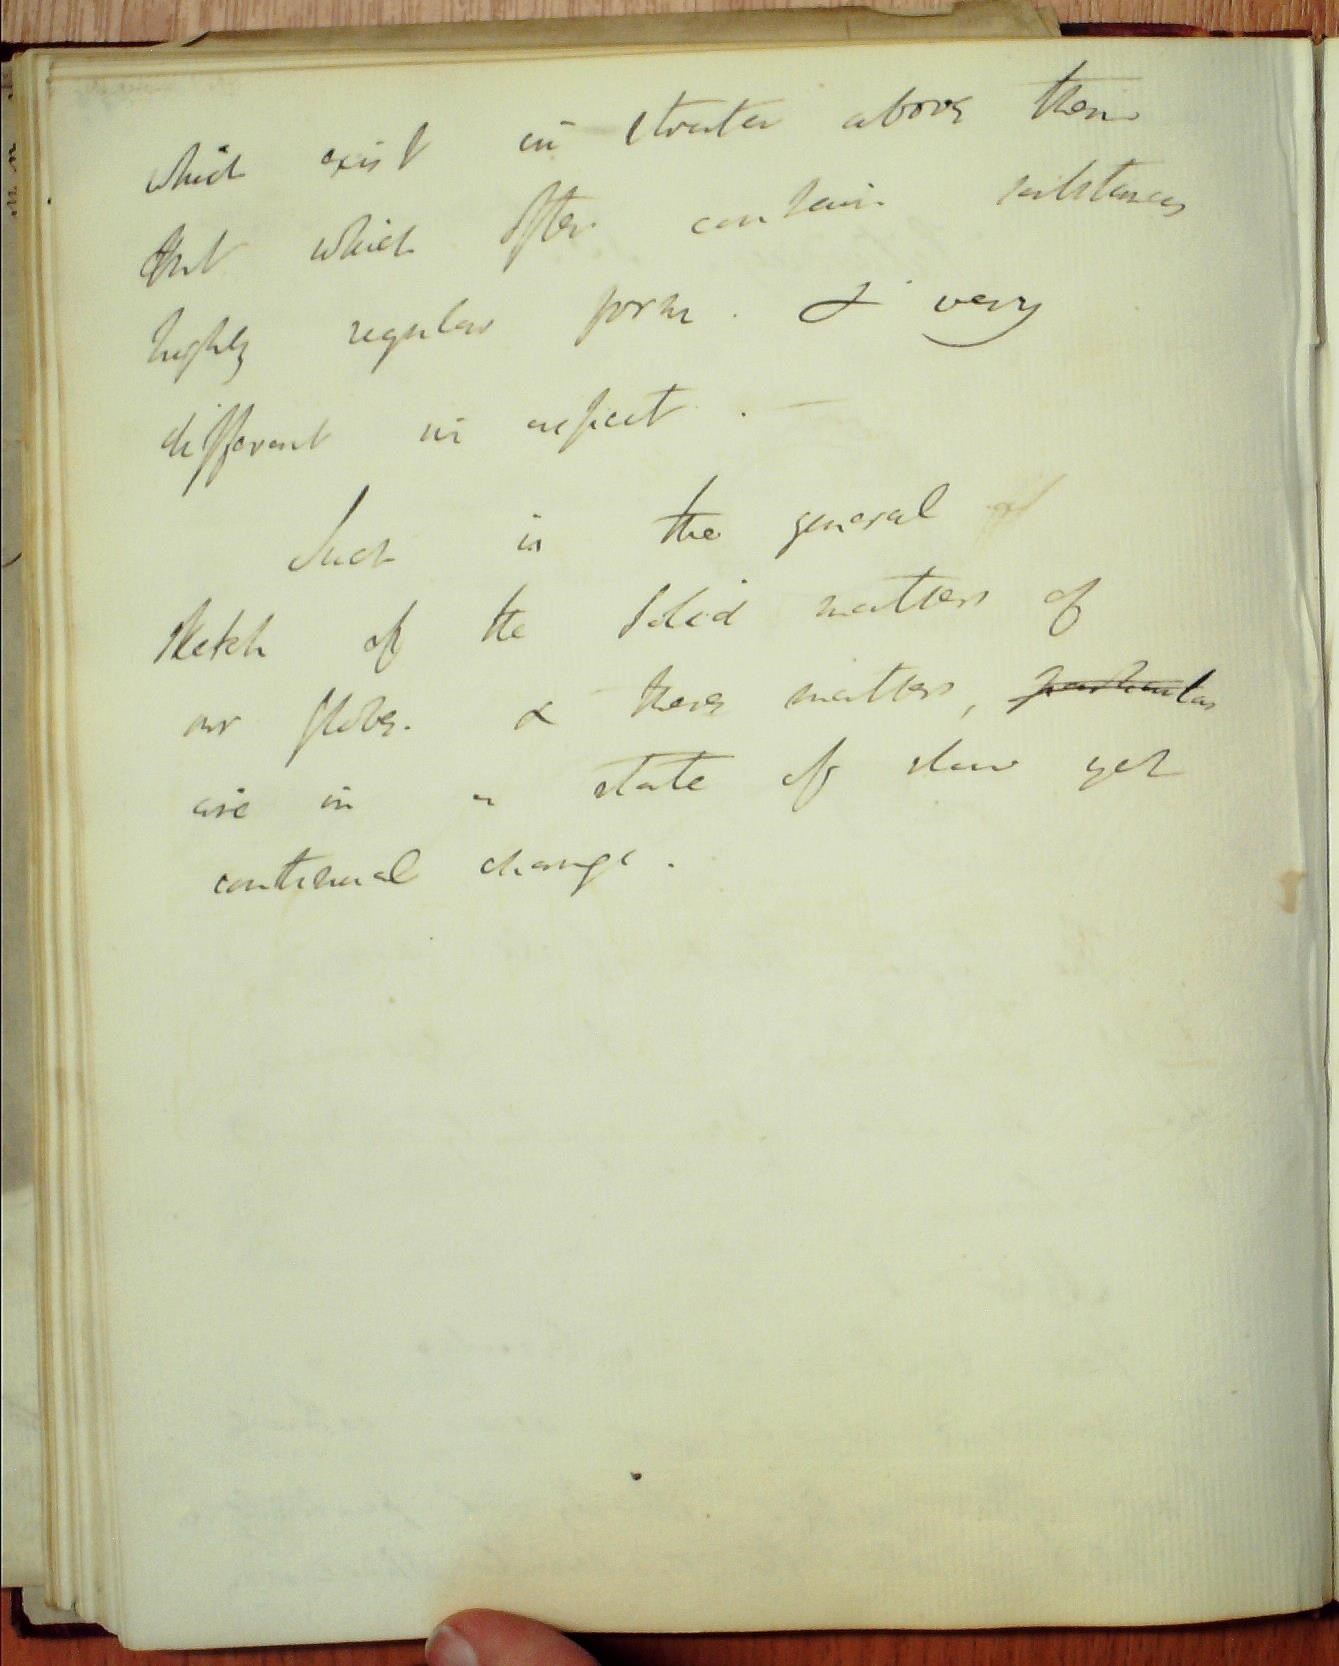 which exist in strata above them
but which often contain substances
highly regular form. & very
different in aspect. —
Such is the general
sketch of the solid matters of
our globe. & these matters, particular
are in a state of slow yet
continual change.